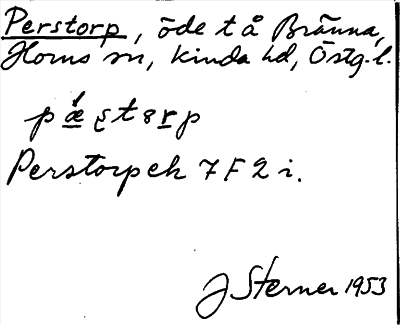 Perstorp, öde t å Bränna,
Horns sn, Kinda hd, Östg. l.
Perstorp ek 7 F 2 i.
J Sterner 1953